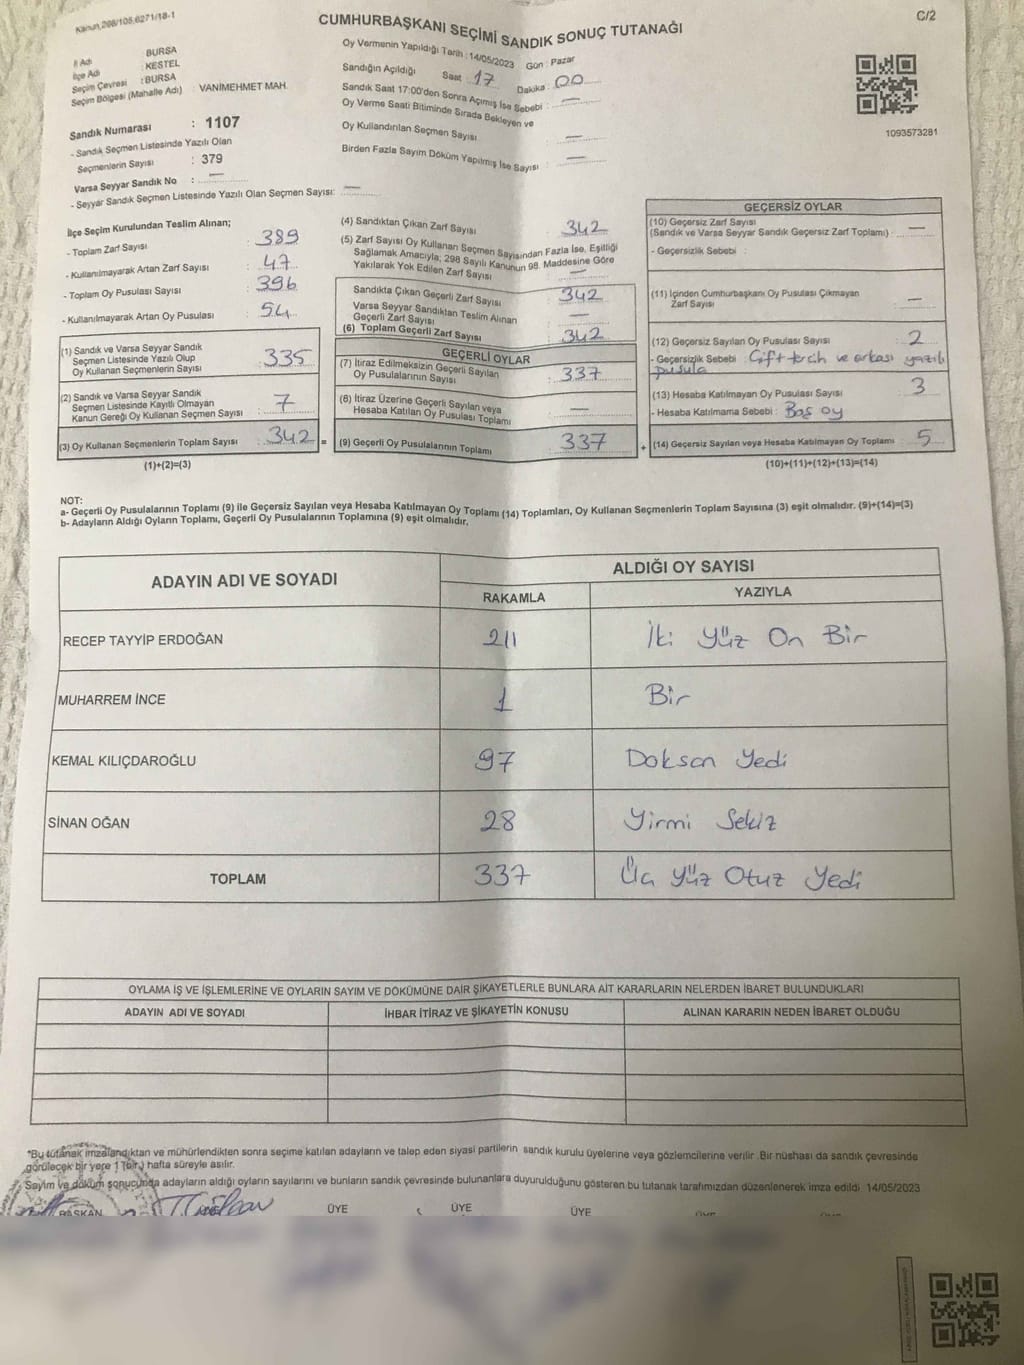 Kanun,298/105,6271/18-1
C/2
CUMHURBAŞKANI SEÇİMİ SANDIK SONUÇ TUTANAĞI
İl Adı : BURSA
İlçe Adı : KESTEL
Seçim Çevresi : BURSA
Seçim Bölgesi (Mahalle Adı) VANİMEHMET MAH.
Sandık Numarası : 1107
- Sandık Seçmen Listesinde Yazılı Olan
Seçmenlerin Sayısı : 379
Varsa Seyyar Sandık No : —
- Seyyar Sandık Seçmen Listesinde Yazılı Olan Seçmen Sayısı: —
Oy Vermenin Yapıldığı Tarih : 14/05/2023 Gün : Pazar
Sandığın Açıldığı Saat : 17 Dakika : 00
Sandık Saat 17:00'den Sonra Açımış İse Sebebi : —
Oy Verme Saati Bitiminde Sırada Bekleyen ve
Oy Kullandırılan Seçmen Sayısı : —
Birden Fazla Sayım Döküm Yapılmış İse Sayısı : —
1093573281
İlçe Seçim Kurulundan Teslim Alınan;
- Toplam Zarf Sayısı : 389
- Kullanılmayarak Artan Zarf Sayısı : 47
- Toplam Oy Pusulası Sayısı : 396
- Kullanılmayarak Artan Oy Pusulası : 54
(1) Sandık ve Varsa Seyyar Sandık
Seçmen Listesinde Yazılı Olup
Oy Kullanan Seçmenlerin Sayısı : 335
(2) Sandık ve Varsa Seyyar Sandık
Seçmen Listesinde Kayıtlı Olmayan
Kanun Gereği Oy Kullanan Seçmen Sayısı : 7
(3) Oy Kullanan Seçmenlerin Toplam Sayısı : 342 =
(1)+(2)=(3)
(4) Sandıktan Çıkan Zarf Sayısı : 342
(5) Zarf Sayısı Oy Kullanan Seçmen Sayısından Fazla İse, Eşitliği
Sağlamak Amacıyla; 298 Sayılı Kanunun 98. Maddesine Göre
Yakılarak Yok Edilen Zarf Sayısı : —
Sandıkta Çıkan Geçerli Zarf Sayısı : 342
Varsa Seyyar Sandıktan Teslim Alınan
Geçerli Zarf Sayısı : —
(6) Toplam Geçerli Zarf Sayısı : 342
GEÇERLİ OYLAR
(7) İtiraz Edilmeksizin Geçerli Sayılan
Oy Pusulalarının Sayısı : 337
(8) İtiraz Üzerine Geçerli Sayılan veya
Hesaba Katılan Oy Pusulası Toplamı : —
(9) Geçerli Oy Pusulalarının Toplamı : 337 +
GEÇERSİZ OYLAR
(10) Geçersiz Zarf Sayısı
(Sandık ve Varsa Seyyar Sandık Geçersiz Zarf Toplamı) : —
- Geçersizlik Sebebi :
(11) İçinden Cumhurbaşkanı Oy Pusulası Çıkmayan
Zarf Sayısı : —
(12) Geçersiz Sayılan Oy Pusulası Sayısı : 2
- Geçersizlik Sebebi : Çift tercih ve arkası yazılı
pusula
(13) Hesaba Katılmayan Oy Pusulası Sayısı : 3
- Hesaba Katılmama Sebebi : Boş oy
(14) Geçersiz Sayılan veya Hesaba Katılmayan Oy Toplamı : 5
(10)+(11)+(12)+(13)=(14)
NOT:
a- Geçerli Oy Pusulalarının Toplamı (9) ile Geçersiz Sayılan veya Hesaba Katılmayan Oy Toplamı (14) Toplamları, Oy Kullanan Seçmenlerin Toplam Sayısına (3) eşit olmalıdır. (9)+(14)=(3)
b- Adayların Aldığı Oyların Toplamı, Geçerli Oy Pusulalarının Toplamına (9) eşit olmalıdır.
ADAYIN ADI VE SOYADI ALDIĞI OY SAYISI
RAKAMLA YAZIYLA
RECEP TAYYİP ERDOĞAN 211 İki Yüz On Bir
MUHARREM İNCE 1 Bir
KEMAL KILIÇDAROĞLU 97 Doksan Yedi
SİNAN OĞAN 28 Yirmi Sekiz
TOPLAM 337 Üç Yüz Otuz Yedi
OYLAMA İŞ VE İŞLEMLERİNE VE OYLARIN SAYIM VE DÖKÜMÜNE DAİR ŞİKAYETLERLE BUNLARA AİT KARARLARIN NELERDEN İBARET BULUNDUKLARI
ADAYIN ADI VE SOYADI İHBAR İTİRAZ VE ŞİKAYETİN KONUSU ALINAN KARARIN NEDEN İBARET OLDUĞU
*Bu tutanak imzalandıktan ve mühürlendikten sonra seçime katılan adayların ve talep eden siyasi partilerin sandık kurulu üyelerine veya gözlemcilerine verilir. Bir nüshası da sandık çevresinde
görülecek bir yere 1 (bir) hafta süreyle asılır.
Sayım ve döküm sonucunda adayların aldığı oyların sayılarını ve bunların sandık çevresinde bulunanlara duyurulduğunu gösteren bu tutanak tarafımızdan düzenlenerek imza edildi 14/05/2023
BAŞKAN ÜYE ÜYE ÜYE